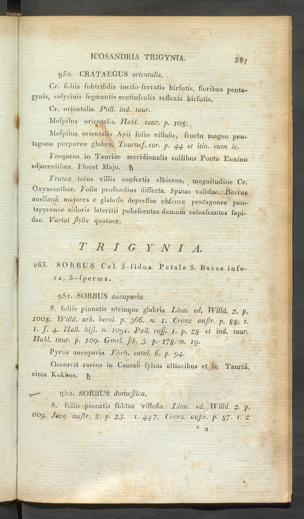 ICOSANDRIA TRIGYNIA. 387
950. CRATAEGUS orientalis.
Cr. foliis subtrifidis inciso-serratis hirsutis, floribus penta-
gynis, calycinis segmentis acutiusculis reflexis hirsutis.
Cr. orientalis. Pall. ind. taur.
Mespilus orientalis. Habl. taur. p. 108.
Mespilus orientalis Apii folio villoso, fructu magno pen-
tagono purpureo glabro. Tournef. cor. p. 44 et itin. cum ic.
Frequens in Tauriae meridionalis collibus Ponto Euxino
adjacentibus. Floret Majo. ♄
Frutex totus villis confertis albicans, magnitudine Cr.
Oxyacanthae. Folia profundius dissecta. Spinae validae. Baccae
avellana majores e glaboso depressae obscure pentagonae pen-
tapyrenae coloris lateritii pubescentes demum calvescentes sapi-
dae. Variat stylis quatuor.
TRIGYNIA.
263. SORBUS Cal. 5-fidus. Petala 5. Bacca infe-
ra, 3-sperma.
951. SORBUS aucuparia.
S. foliis pinnatis utrinque glabris. Linn. ed. Willd. 2. p.
1008. Willd. arb. berol. p. 366. n. 1. Cranz austr. p. 88. t.
1. f. 4. Hall. hist. n. 1091. Pall. ross. 1. p. 28 et ind. taur.
Habl. taur. p. 109. Gmel. sib. 3. p. 178. n. 19.
Pyrus aucuparia Ehrh. catal. 6. p. 94.
Occurrit rarius in Caucasi sylvis altioribus et in Tauria
circa Kokkos. ♄
952. SORBUS domestica.
S. foliis pinnatis subtus villosis. Linn. ed. Willd. 2. p.
1009. Jacq. austr. 5. p. 23. t. 447. Cranz. austr. p. 87. t. 2